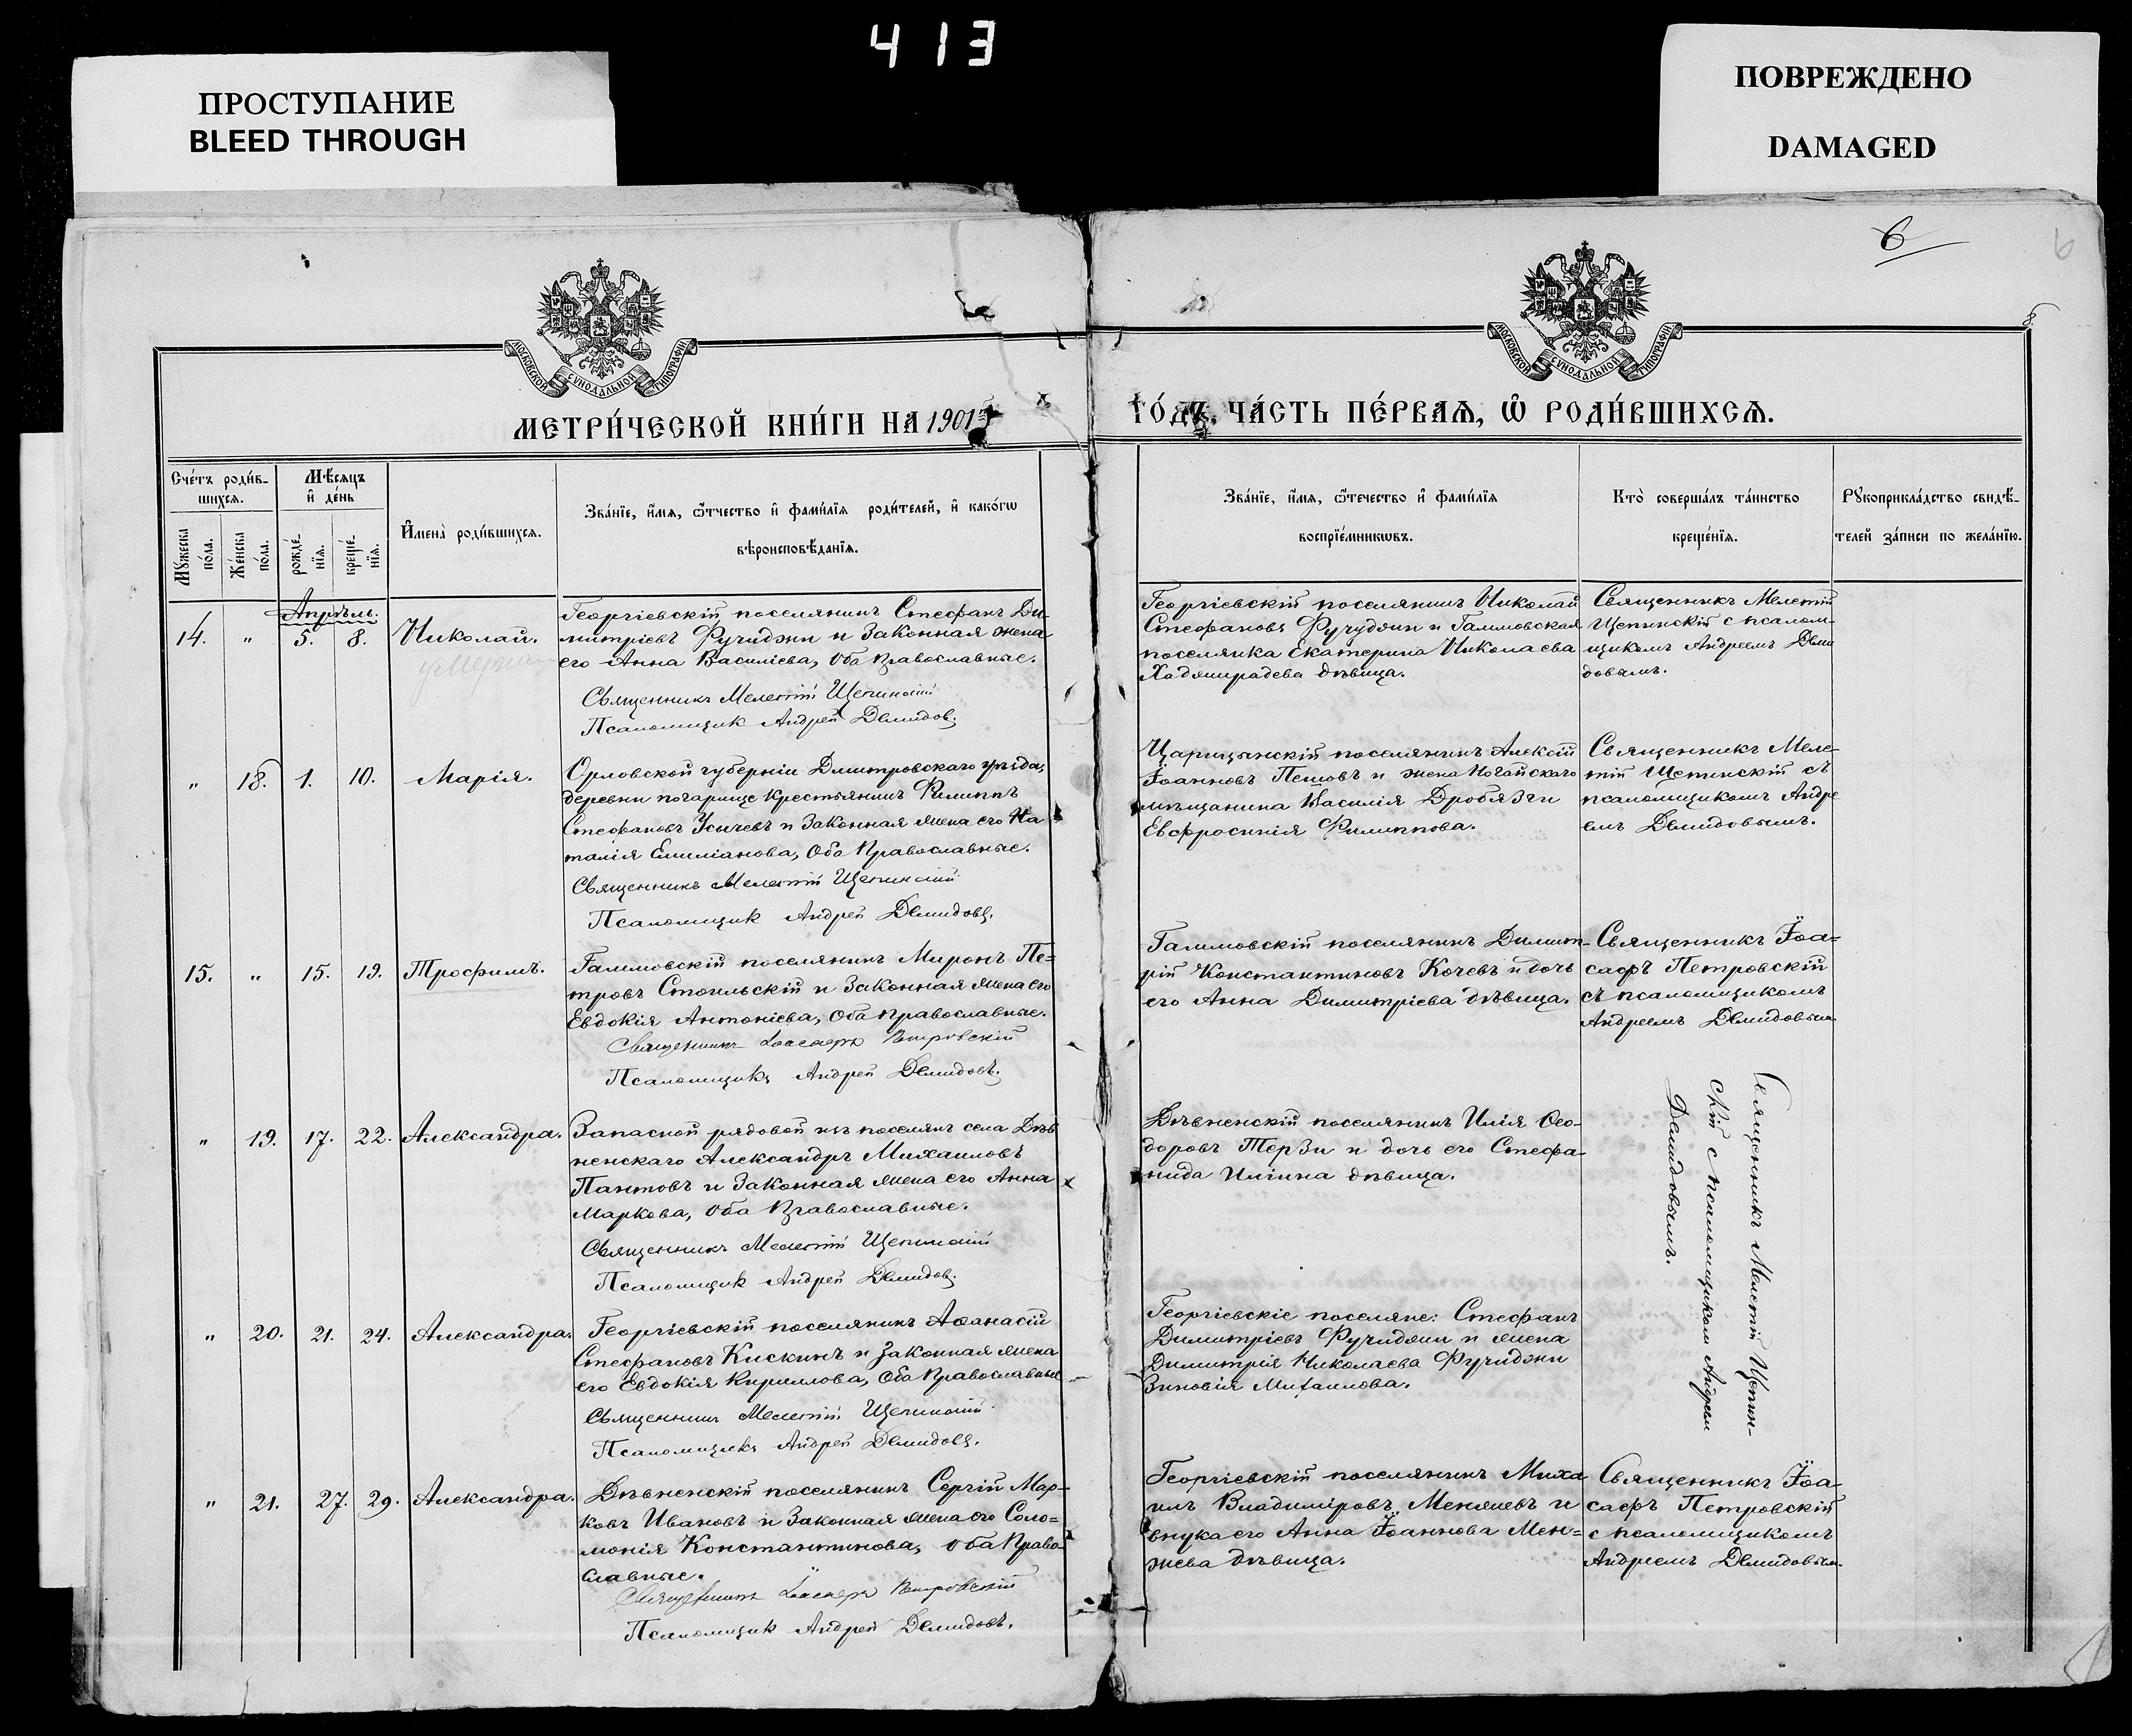 413
ПРОСТУПАНИЕ
BLEED THROUGH
ПОВРЕЖДЕНО
DAMAGED
6
6
8.
МОСКОВСКОЙ СѴНОДАЛЬНОЙ ТИПОГРАФІИ
МОСКОВСКОЙ СѴНОДАЛЬНОЙ ТИПОГРАФІИ
МЕТРИ́ЧЕСКОЙ КНИ́ГИ НА 1901й
ГО́ДЪ, ЧА́СТЬ ПЕ́РВАѦ, Ѡ҆ РОДИ́ВШИХСѦ.
Сче́тъ роди́в-
шихсѧ.
Мѣ́сѧцъ
и҆ де́нь
Мꙋ́жеска
по́ла.
Же́нска
по́ла.
рожде́-
нїѧ.
креще́-
нїѧ.
И҆мена̀ роди́вшихсѧ.
Зва́нїе, и҆́мѧ, ѻ҆́тчество и҆ фами́лїѧ роди́телей, и҆ како́гѡ
вѣроисповѣ́данїѧ.
Зва́нїе, и҆́мѧ, ѻ҆те́чество и҆ фами́лїѧ
воспрїе́мникѡвъ.
Кто̀ соверша́лъ та́инство
креще́нїѧ.
Рꙋкоприкла́дство свидѣ́-
телей за́писи по жела́нїю.
Апрѣль.
14. „ 5. 8. Николай.
умеръ
Георгіевскій поселянинъ Стефанъ Ди-
митріевъ Фучиджи и законная жена
его Анна Василіева, оба православные.
Священникъ Мелетій Щепинскій
Псаломщик Андрей Демидов.
Георгіевскій поселянинъ Николай
Стефановъ Фучуджи и Галмовская
поселянка Екатерина Николаева
Хаджирадева дѣвица.
Священникъ Мелетій
Щепинскій с псалом-
щикомъ Андреемъ Деми
довымъ.
„ 18. 1. 10. Марія.
Орловской губерніи Дмитровскаго уѣзда,
деревни погарище крестьянинъ Филиппъ
Стефановъ Усачевъ и законная жена его На
талія Емиліанова, оба православные.
Священникъ Мелетій Щепинскій
Псаломщик Андрей Демидовъ.
Царицынскій поселянинъ Алексій
Іоанновъ Пешовъ и жена Ногайскаго
мѣщанина Василія Дробязги
Евфросинія Филиппова.
Священникъ Меле-
тій Щепинскій съ
псаломщикомъ Андре
емъ Демидовымъ.
15. „ 15. 19. Трофимъ.
Галмовскій поселянинъ Миронъ Пе=
тровъ Стоильскій и законная жена его
Евдокія Антоніева, оба православные.
Священникъ Іоасафъ Петровскій
Псаломщикъ Андрей Демидовъ.
Галмовскій поселянинъ Димит-
рій Константиновъ Кочевъ и дочь
его Анна Димитріева дѣвица.
Священникъ Іоа=
сафъ Петровскій
съ псаломщикомъ
Андреемъ Демидовым
„ 19. 17. 22. Александра.
Запасной рядовой изъ поселянъ села Дѣв
ненскаго Александръ Михаиловъ
Пантовъ и законная жена его Анна
Маркова, оба православные.
Священникъ Мелетій Щепинскій
Псаломщик Андрей Демидов.
Дѣвненскій поселянинъ Илія Ѳео-
доровъ Терзи и дочь его Стефа-
нида Иліина дѣвица.
Священникъ Мелетій Щепин-
скій с псаломщиком Андреем
Демидовымъ.
„ 20. 21. 24. Александра.
Георгіевскій поселянинъ Аѳанасій
Стефановъ Кискинъ и законная жена
его Евдокія Кириллова, оба православные
Священникъ Мелетій Щепинскій
Псаломщикъ Андрей Демидовъ.
Георгіевскіе поселяне: Стефанъ
Димитріевъ Фучиджи и жена
Димитрія Николаева Фучиджи
Зиновія Михаилова.
„ 21. 27. 29. Александра.
Дѣвненскій поселянинъ Сергій Мар-
ковъ Ивановъ и законная жена его Соло=
монія Константинова, оба право-
славные.
Священникъ Іоасафъ Петровскій
Псаломщик Андрей Демидовъ.
Георгіевскій поселянинъ Миха
илъ Владиміровъ Менжевъ и
внука его Анна Іоаннова Мен=
жева дѣвица.
Священникъ Іоа-
сафъ Петровскій
с псаломщикомъ
Андреемъ Демидовым.